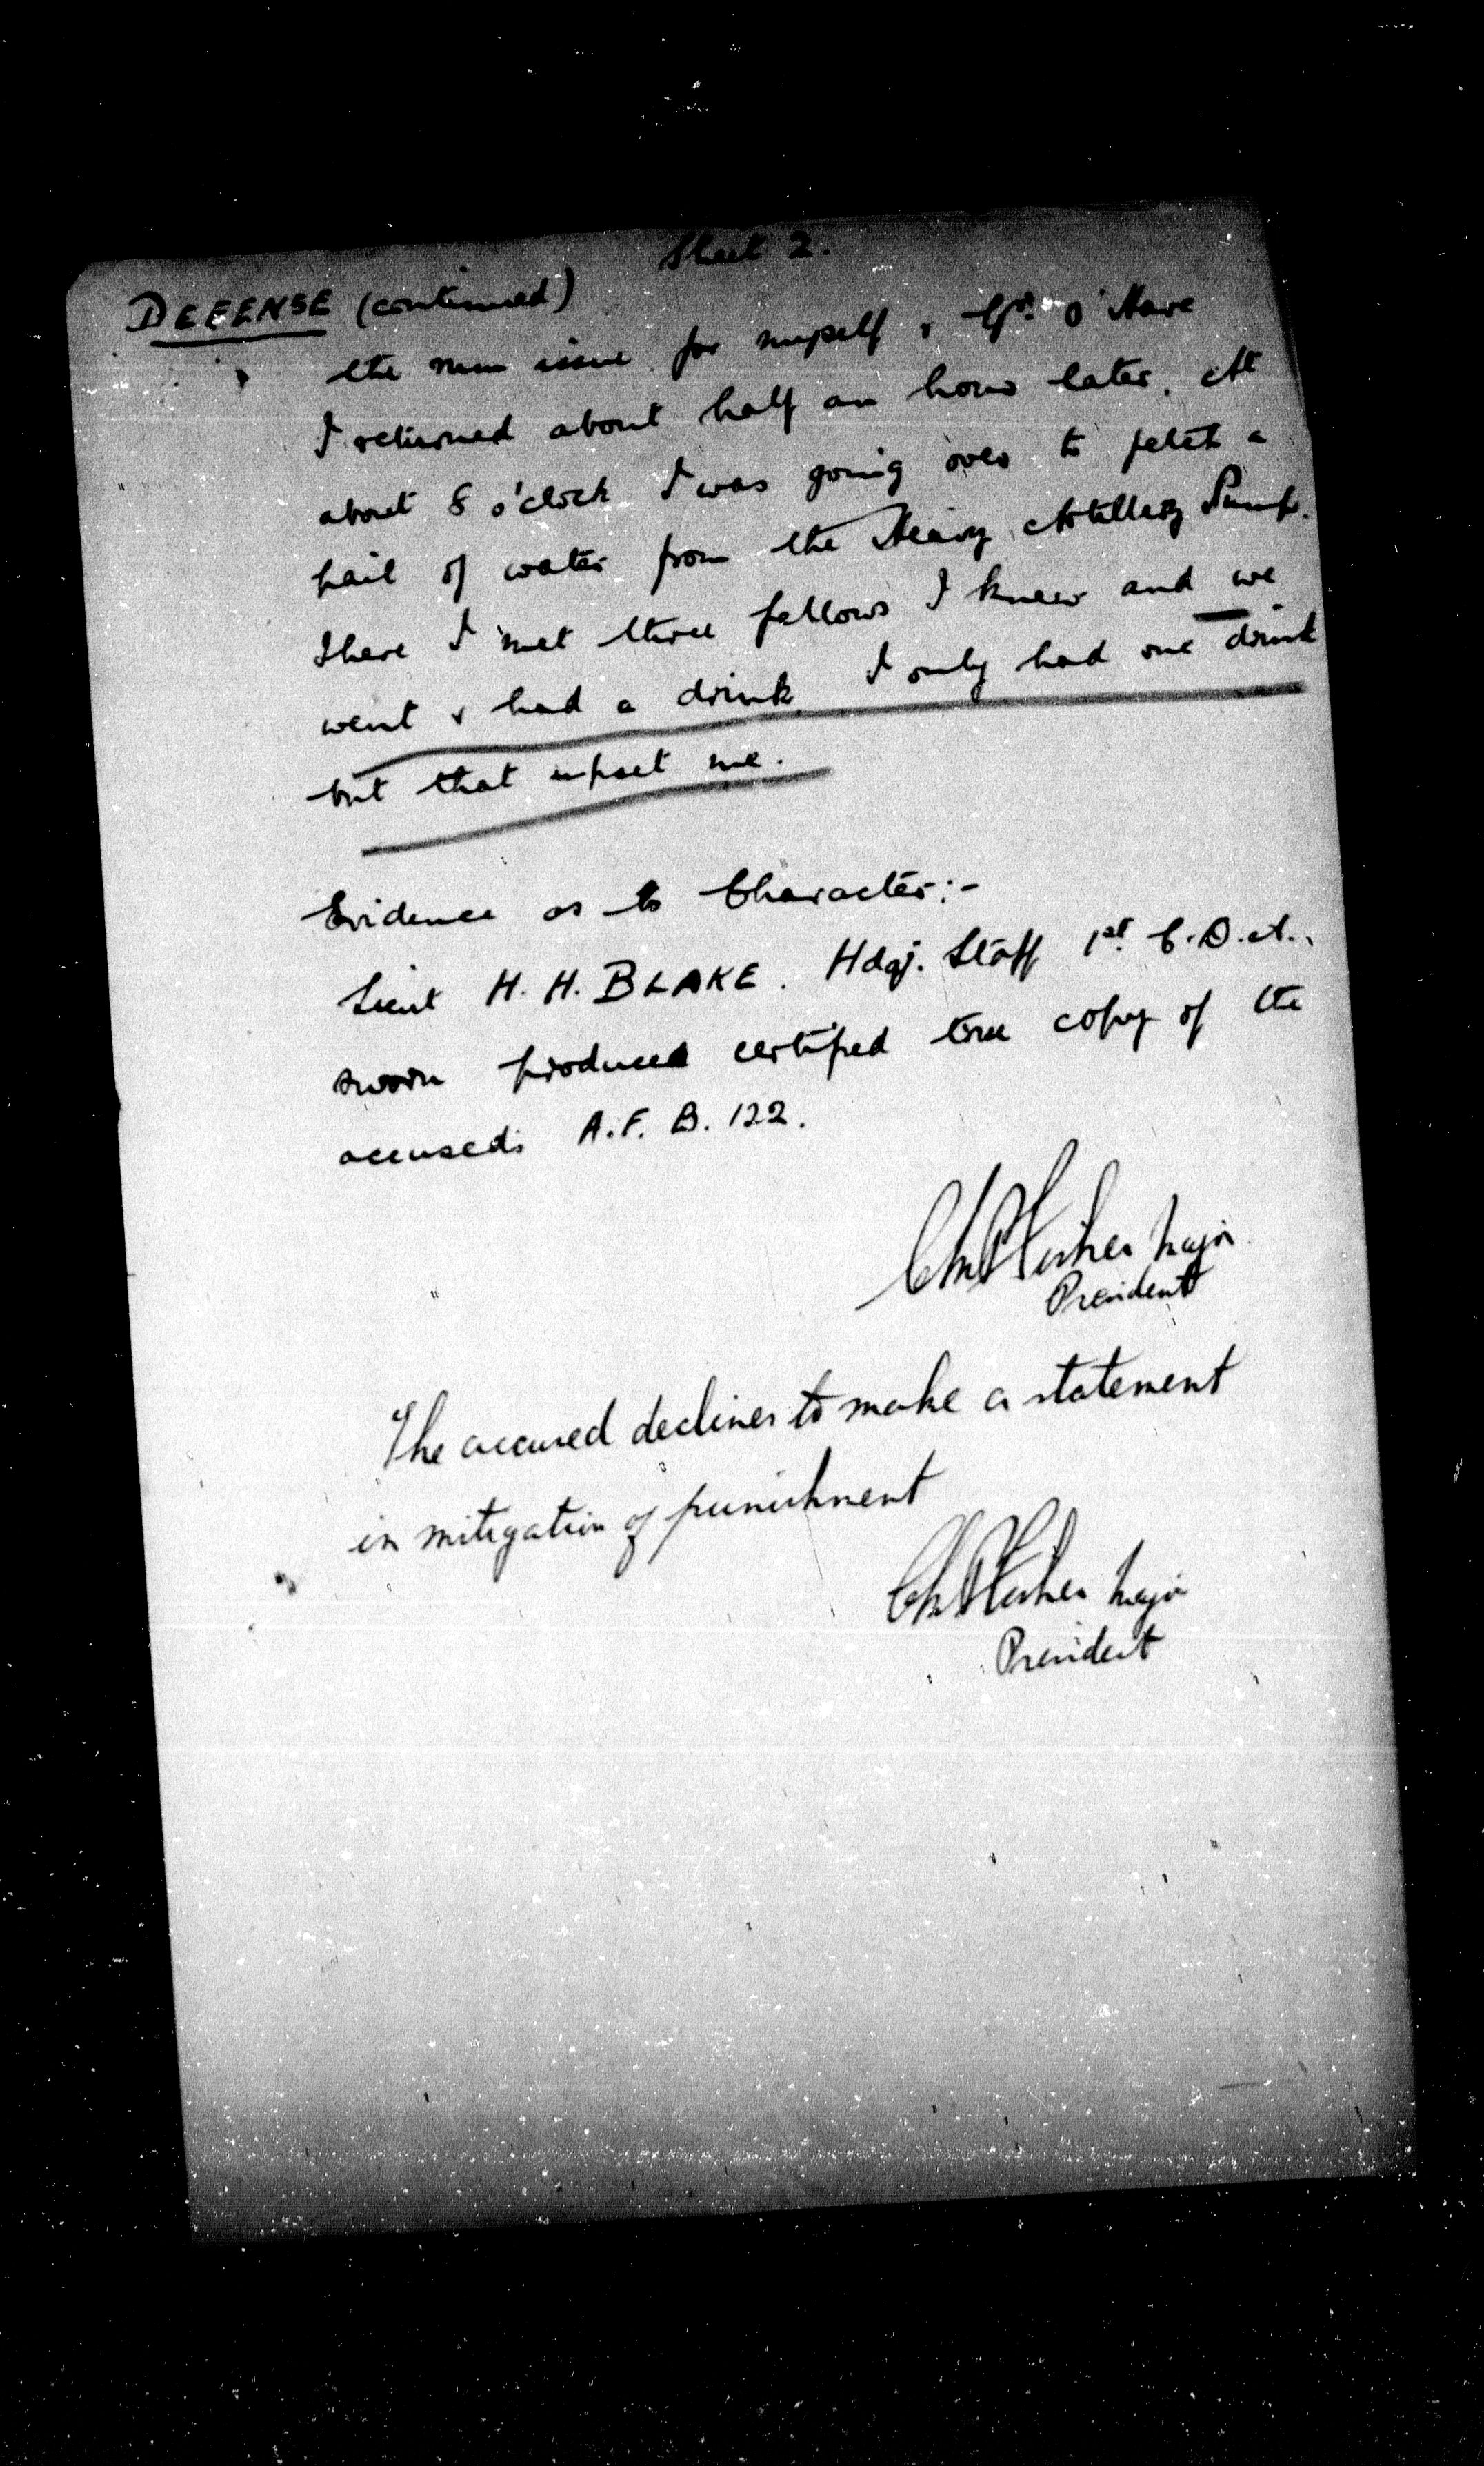 Sheet 2.
DEFENSE (continued)
the rum issue for myself & Gr. O'Hare
I returned about half an hour later. At
about 8 o'clock I was going over to fetch a
pail of water from the Heavy Artillery Pump.
there I met three fellows I knew and we
went & had a drink. I only had one drink
but that upset me.
Evidence as to Character:-
Lieut H. H. BLAKE. Hdqr. Staff 1st C.D.A.,
sworn produced certified true copy of the
accused's A.F. B. 122.
Major
President
The accused declines to make a statement
in mitigation of punishment
Major
President